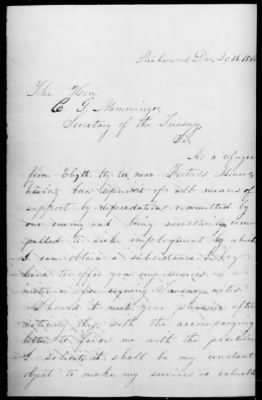 Richmond Dec 20th
The Hon
C. G. Memminger,
Secretary of the Treasury
Sir
As a refugee
from near Fortress Monroe
having been deprived of all means of
support by depredations committed by
our enemy and being necessarily com
pelled to seek employment by which
I can obtain a subsistence I beg
leave to offer you my services as a
for signing Treasury notes
Should it meet your pleasure after
noticing this with the accompanying
letter to favor me with the position
I solicit it shall be my constant
object to make my services as valuable